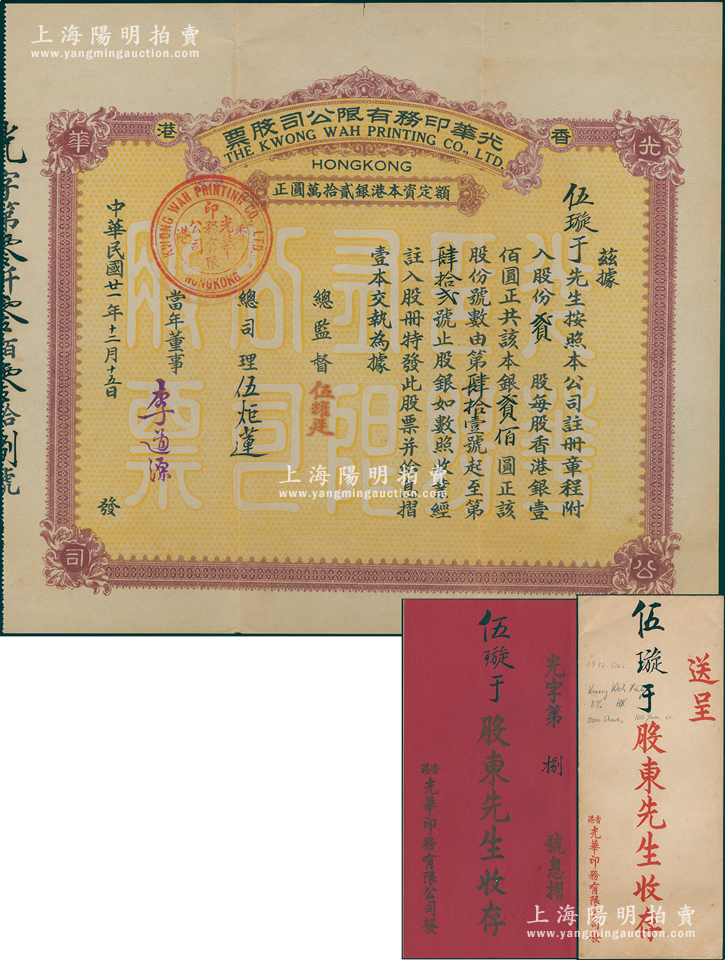 上海陽明拍賣
www.yangmingauction.com
上海陽明拍賣
www.yangmingauction.com
香港
光華印務有限公司股票
THE KWONG WAH PRINTING CO., LTD.
HONGKONG
額定資本港銀貳拾萬圓正
光
華
公
司
KWONG WAH PRINTING CO., LTD.
HONGKONG
香港
光華印務有限公司
茲據
伍璇于先生按照本公司註冊章程附
入股份 貳 股每股香港銀壹
佰圓正共該本銀貳佰圓正該
股份號數由第肆拾壹號起至第
肆拾貳號止股銀如數照收業經
註入股冊特發此股票并給息摺
壹本交執為據
總監督 伍耀廷
總司理 伍炬蓮
當年董事 李道源
中華民國廿一年十二月十五日
發
光華公司股票
上海陽明拍賣
www.yangmingauction.com
光字第 捌 號息摺
伍璇于股東先生收存
香港光華印務有限公司發
送呈
伍璇于股東先生收存
香港光華印務有限公司發
1932 Dec
HK
上海陽明拍賣
www.yangmingauction.com
上海陽明拍賣
www.yangmingauction.com